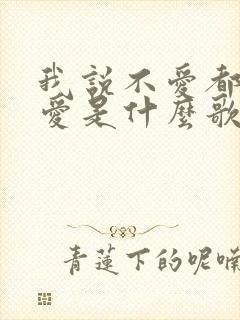 我說不愛都
愛是什麼歌
青蓮下的呢喃